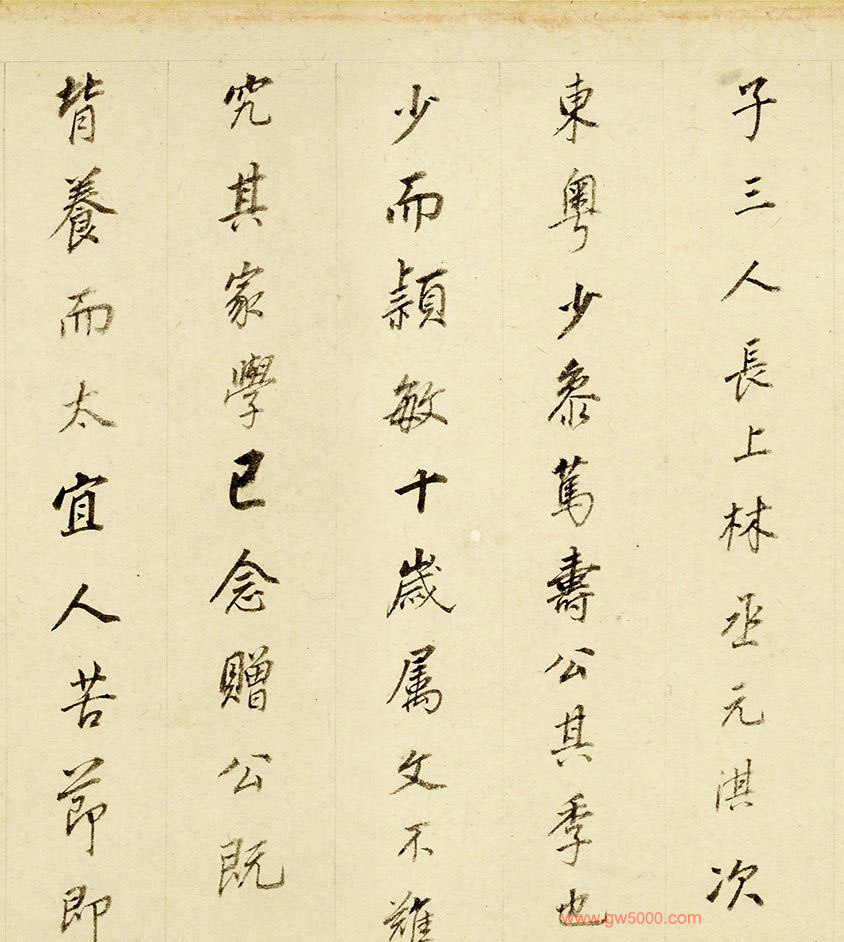 子三人長上林丞元淇次
東粵少叅萬壽公其季也
少而頴敏十歲属文不難
究其家學已念贈公既
背養而太宜人苦節即
www.gw5000.com